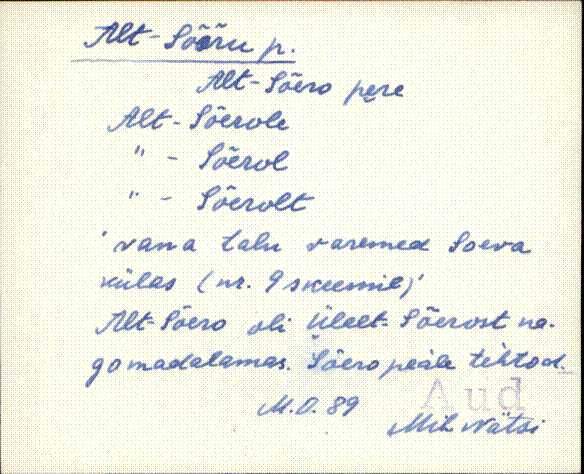 Alt-Sõõru p.
Alt-Sõero pere
Alt-Sõerole
" - Sõerol
" - Sõerolt
'vana talu varemed Soeva
külas (nr. 9 skeemil)'
Alt-Sõero oli Üleelt-Sõerost na-
go madalamas. Sõero peäle tehtod.
Aud
M.O. 89
Mih Nätsi